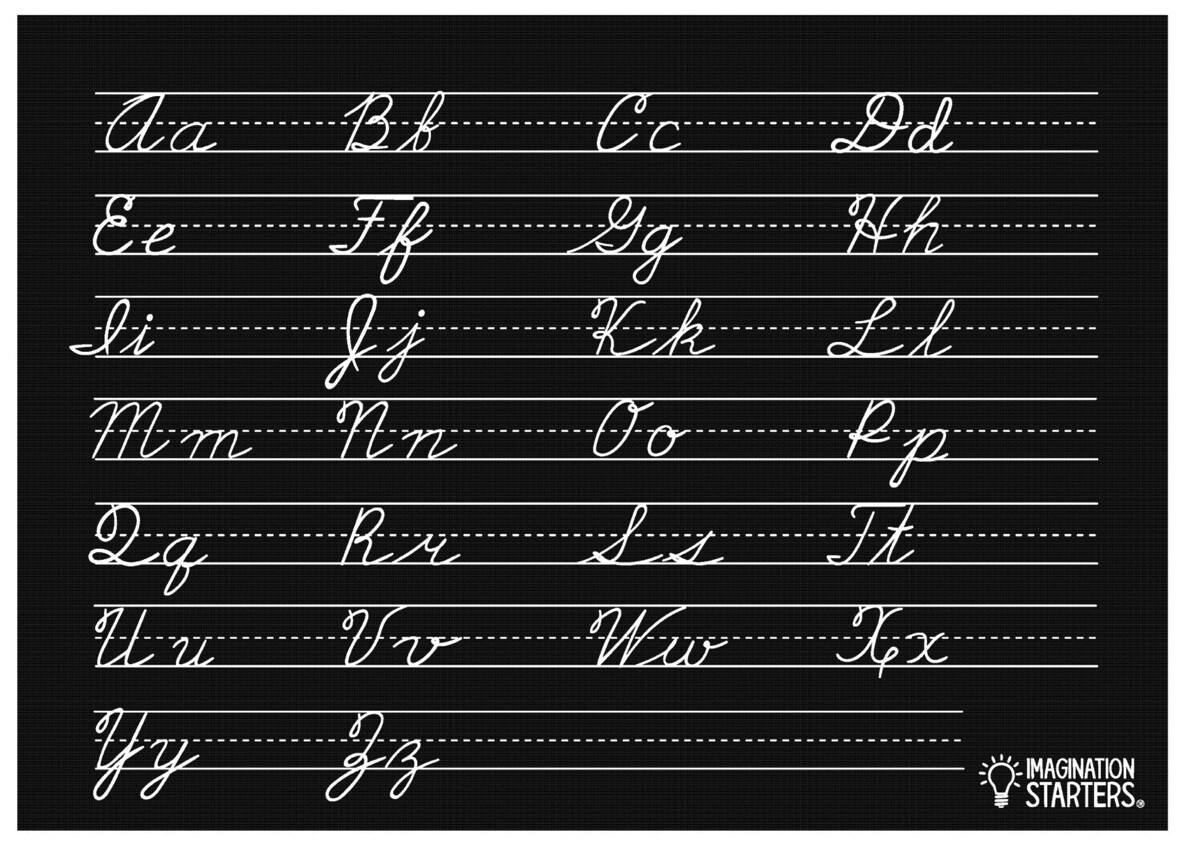 Aa Bb Cc Dd
Ee Ff Gg Hh
Ii Jj Kk Ll
Mm Nn Oo Pp
Qq Rr Ss Tt
Uu Vv Ww Xx
Yy Zz
IMAGINATION
STARTERS®